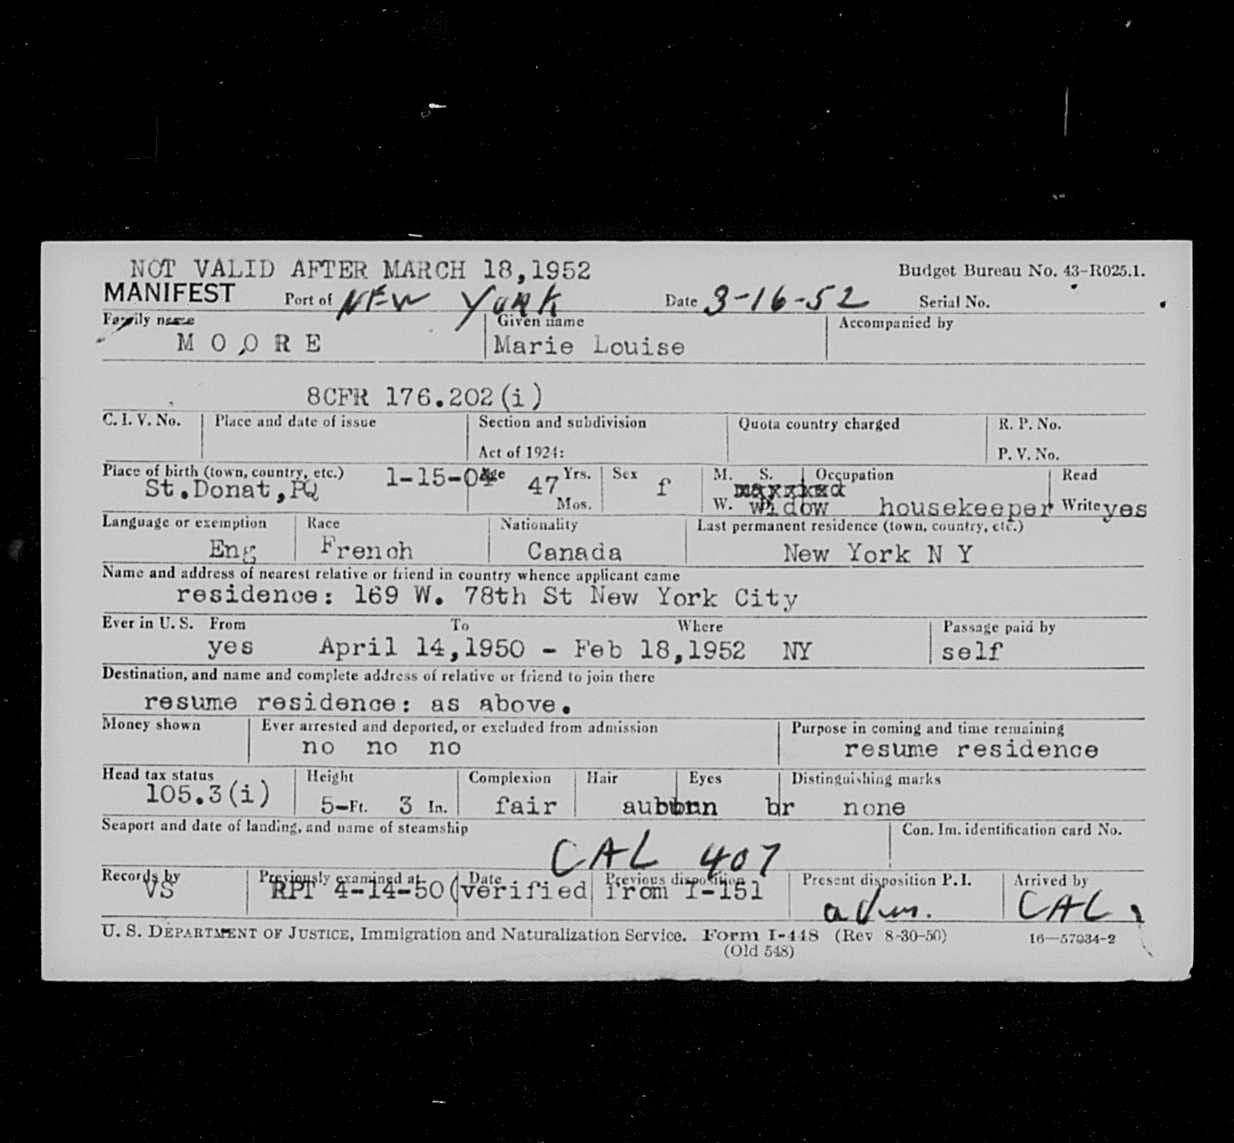 NOT VALID AFTER MARCH 18,1952
Budget Bureau No. 43-R025.1.
MANIFEST Port of NEW YORK Date 3-16-52 Serial No.
Family name Given name Accompanied by
MOORE Marie Louise
8CFR 176.202(i)
C. I. V. No. Place and date of issue Section and subdivision Quota country charged R. P. No.
Act of 1924: P. V. No.
Place of birth (town, country, etc.) 1-15-04 Age 47 Yrs. Sex M. S. Occupation Read
St.Donat,PQ Mos. f W. widow housekeeper Write yes
Language or exemption Race Nationality Last permanent residence (town, country, etc.)
Eng French Canada New York N Y
Name and address of nearest relative or friend in country whence applicant came
residence: 169 W. 78th St New York City
Ever in U. S. From To Where Passage paid by
yes April 14,1950 - Feb 18,1952 NY self
Destination, and name and complete address of relative or friend to join there
resume residence: as above.
Money shown Ever arrested and deported, or excluded from admission Purpose in coming and time remaining
no no no resume residence
Head tax status Height Complexion Hair Eyes Distinguishing marks
105.3(i) 5-Ft. 3 In. fair auburn br none
Seaport and date of landing, and name of steamship Con. Im. identification card No.
CAL 407
Records by Previously examined at Date Previous disposition Present disposition P.I. Arrived by
VS RPT 4-14-50 (verified from I-151 adm. CAL
U. S. DEPARTMENT OF JUSTICE, Immigration and Naturalization Service. Form I-448 (Rev 8-30-50) 16—57034-2
(Old 548)